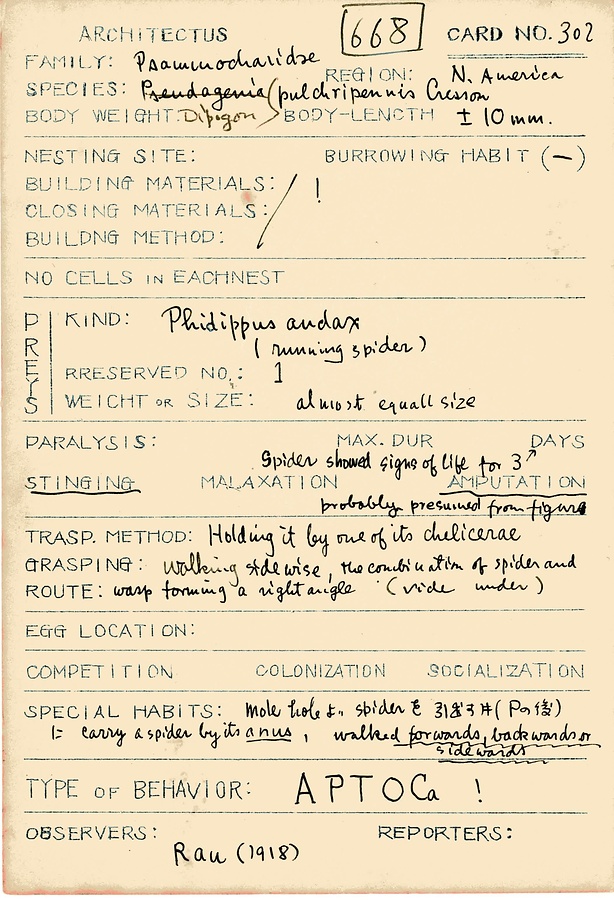 668
ARCHITECTUS CARD NO. 302
FAMILY: Psammocharidse
REGION: N. America
SPECIES: Pseudagenia (pulchripennis Cresson
BODY WEIGHT: Dipogon) BODY-LENGTH ± 10 mm.
NESTING SITE: BURROWING HABIT (—)
BUILDING MATERIALS: / !
CLOSING MATERIALS:
BUILDNG METHOD:
NO CELLS IN EACHNEST
PREYS
KIND: Phidippus audax
(running spider)
RRESERVED NO.: 1
WEIGHT OR SIZE: almost equall size
PARALYSIS: MAX. DUR DAYS
Spider showed signs of life for 3
STINGING MALAXATION AMPUTATION
probably presumed from figure
TRASP. METHOD: Holding it by one of its chelicerae
GRASPING: walking sidewise, the combination of spider and
ROUTE: wasp forming a right angle (vide under)
EGG LOCATION:
COMPETITION COLONIZATION SOCIALIZATION
SPECIAL HABITS: Mole hole より spider を 引き出す(Pの後)
に carry a spider by its anus, walked forwards, backwards or
sidewards
TYPE OF BEHAVIOR: APTOCa !
OBSERVERS: REPORTERS:
Rau (1918)